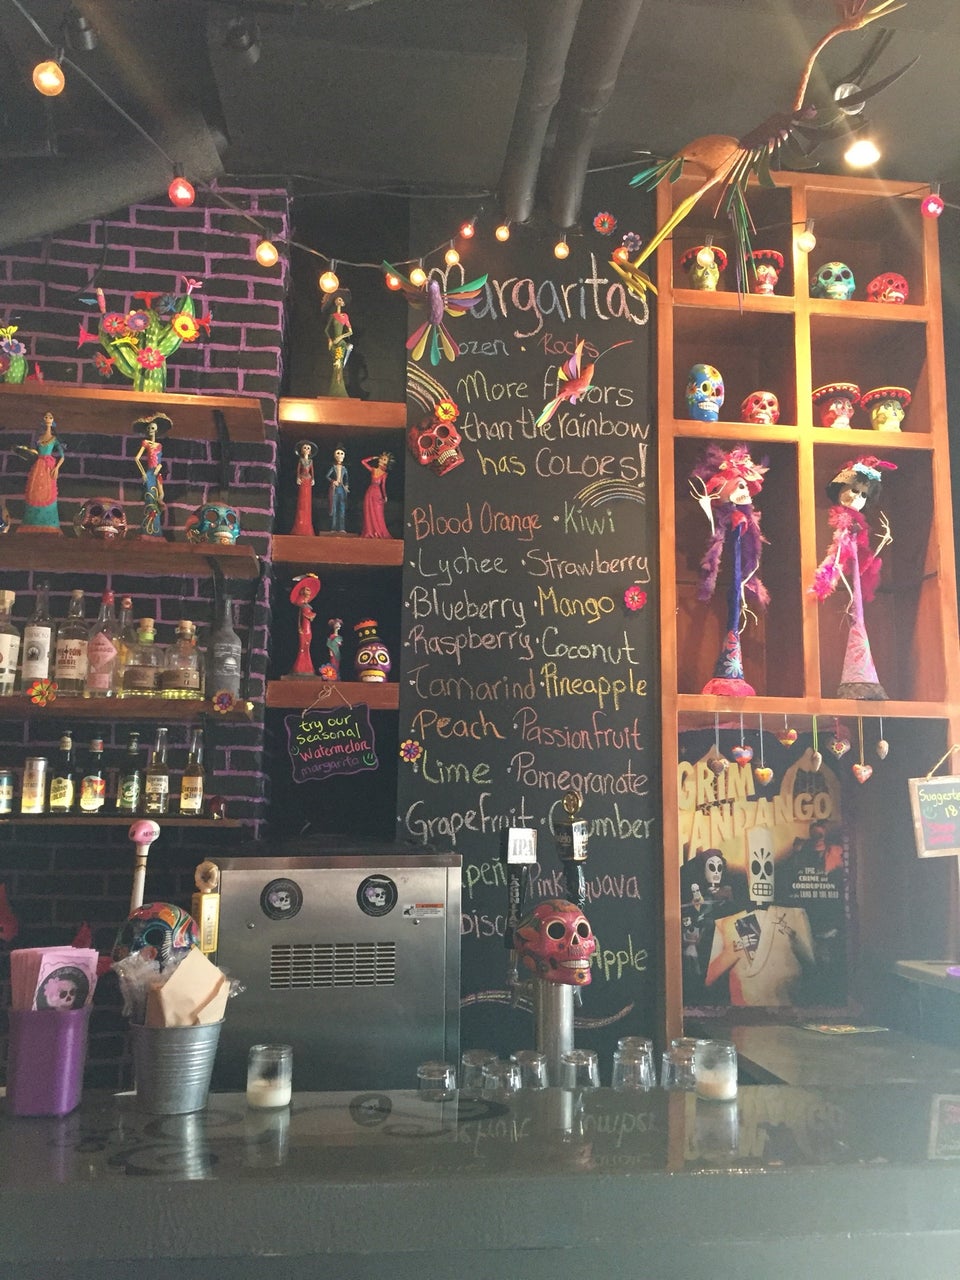 Margaritas
Frozen · Rocks
More flavors
than the rainbow
has COLORS!
· Blood Orange · Kiwi
· Lychee · Strawberry
· Blueberry · Mango
· Raspberry · Coconut
· Tamarind · Pineapple
· Peach · Passionfruit
· Lime · Pomegranate
· Grapefruit · Cucumber
Pink Guava
Apple
try our
seasonal
watermelon
margarita
GRIM
FANDANGO
AN EPIC TALE OF
CRIME AND
CORRUPTION
IN THE LAND OF THE DEAD
IPA
18